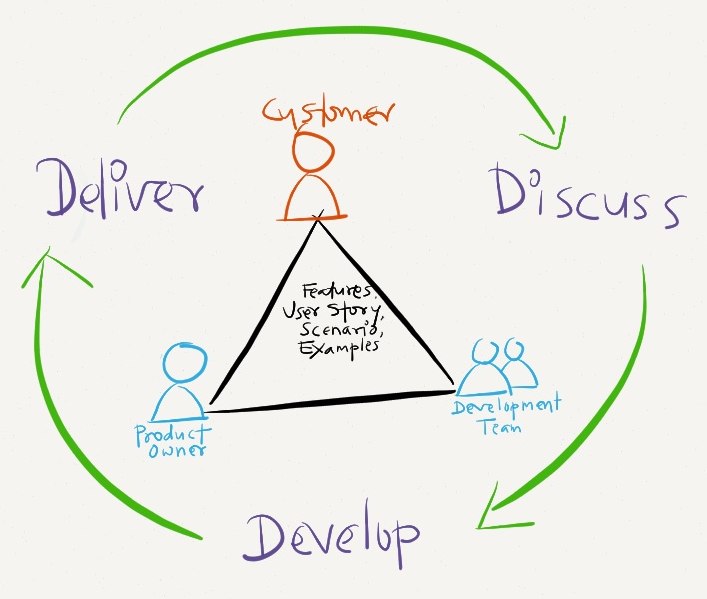 Customer
Deliver
Discuss
Features,
User Story,
Scenario,
Examples
Product
Owner
Development
Team
Develop